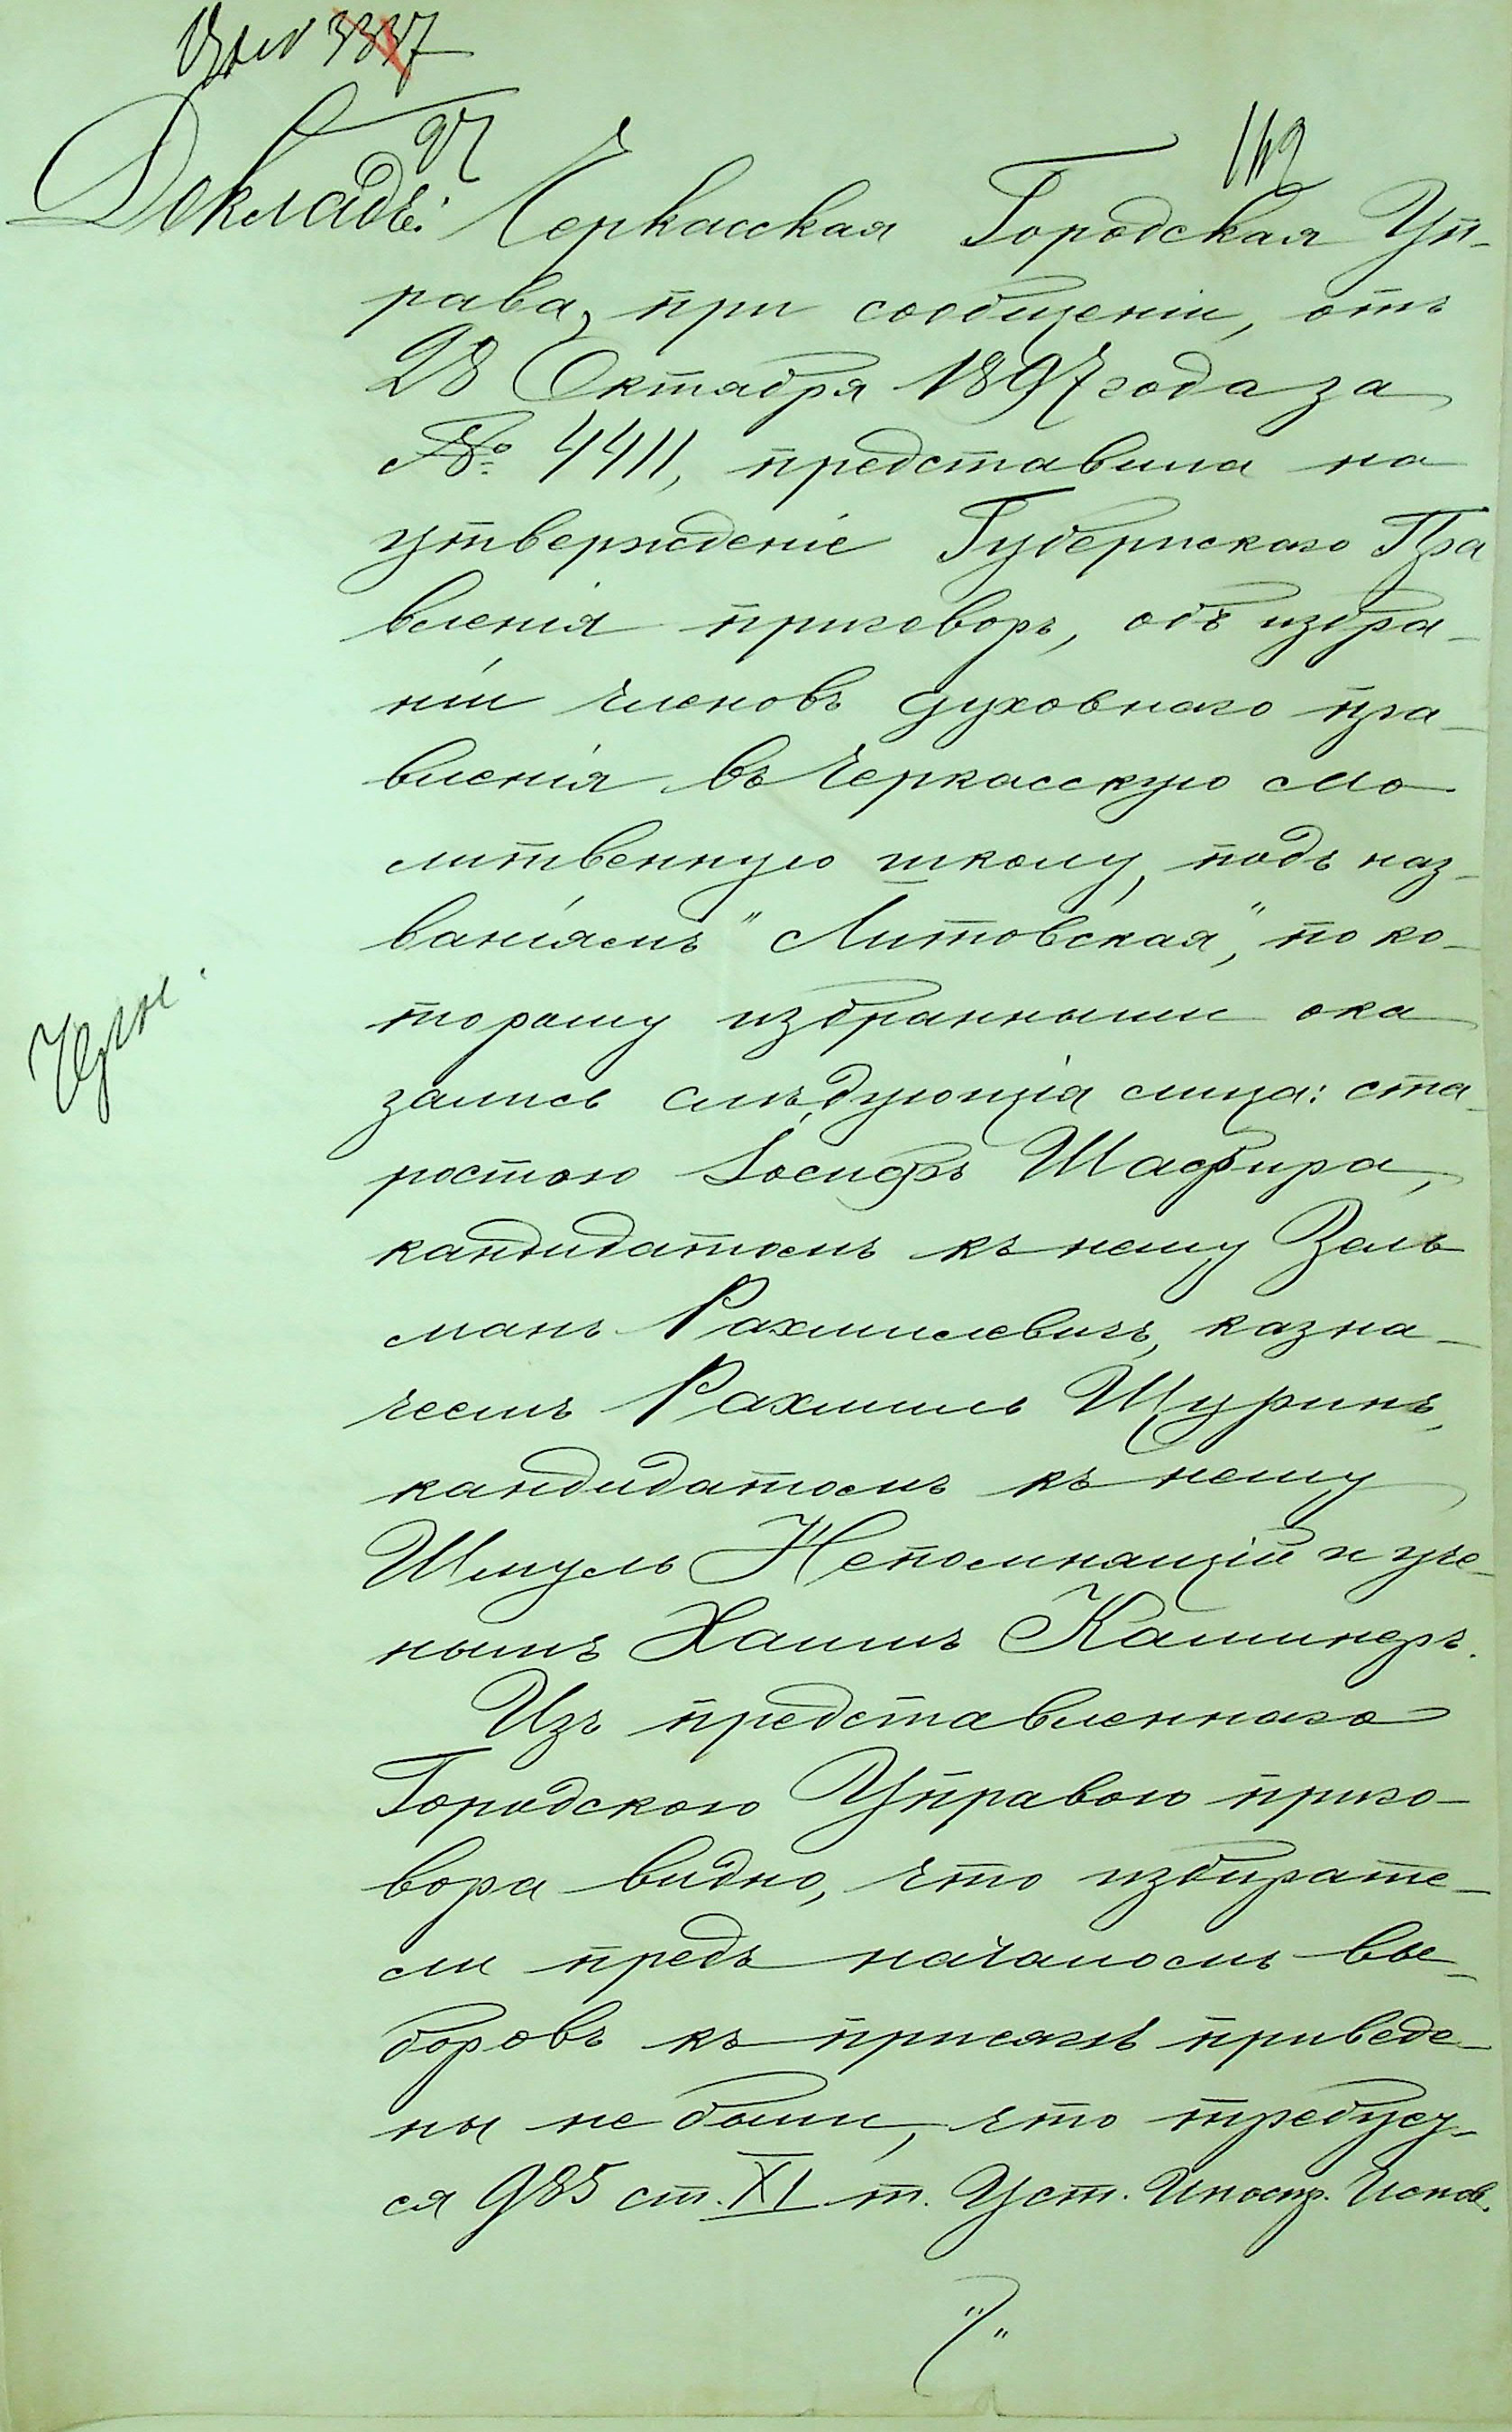 3337
97
142
Докладъ: Черкасская Городская Уп-
рава, при сообщеніи, отъ
28 Октября 1897 года за
№ 4411, представила на
утвержденіе Губернскаго Пра
вленія приговоръ, объ избра-
ніи членовъ духовнаго пра-
вленія въ Черкасскую мо-
литвенную школу, подъ наз-
ваніямъ "Литовская", по ко-
торому избранными ока
зались слѣдующія лица: ста-
ростою Іосифъ Шафира,
кандидатомъ къ нему Зель
манъ Рахмилевичъ, казна-
чеемъ Рахмиль Щуринъ,
кандидатомъ къ нему
Шмуль Непомнящій и уче-
нымъ Хаимъ Камінеръ.
Изъ представленнаго
Городскою Управою приго-
вора видно, что избирате-
ли предъ началомъ вы-
боровъ къ присягѣ приведе-
ны не были, что требует-
ся 985 ст. XI т. Уст. Иностр. Испов.